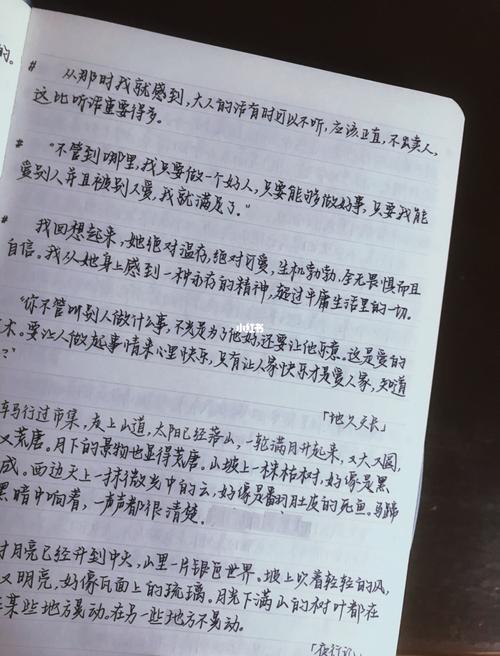 的。
# 从那时我就感到，大人的话有时可以不听，应该正直，不出卖人，
这比听话重要得多。
# “不管到哪里，我只要做一个好人，只要能够做好事，只要我能
爱别人并且被别人爱，我就满足了。”
# 我回想起来，她绝对温存，绝对可爱，生机勃勃，全无畏惧而且
自信。我从她身上感到一种永存的精神，超过平庸生活里的一切。
“你不管叫别人做什么事，不光是为了他好还要让他乐意。这是爱的
术。要让人做起事情来心里快乐，只有让人家快乐才是爱人家，知道
？”
「地久天长」
车马行过市集，走上山道，太阳已经落山，一轮满月升起来，又大又圆，
又荒唐。月下的景物也显得荒唐。山坡上一株枯树，好像是黑
成。西边天上一抹微光中的云，好像是翻肚皮的死鱼。马蹄
黑暗中响着，一声声都很清楚。
时月亮已经升到中天，山里一片银色世界。坡上吹着轻轻的风，
又明亮，好像瓦面上的琉璃。月光下满山的树叶都在
在某些地方晃动。在另一些地方不晃动。
「夜行记」
小红书